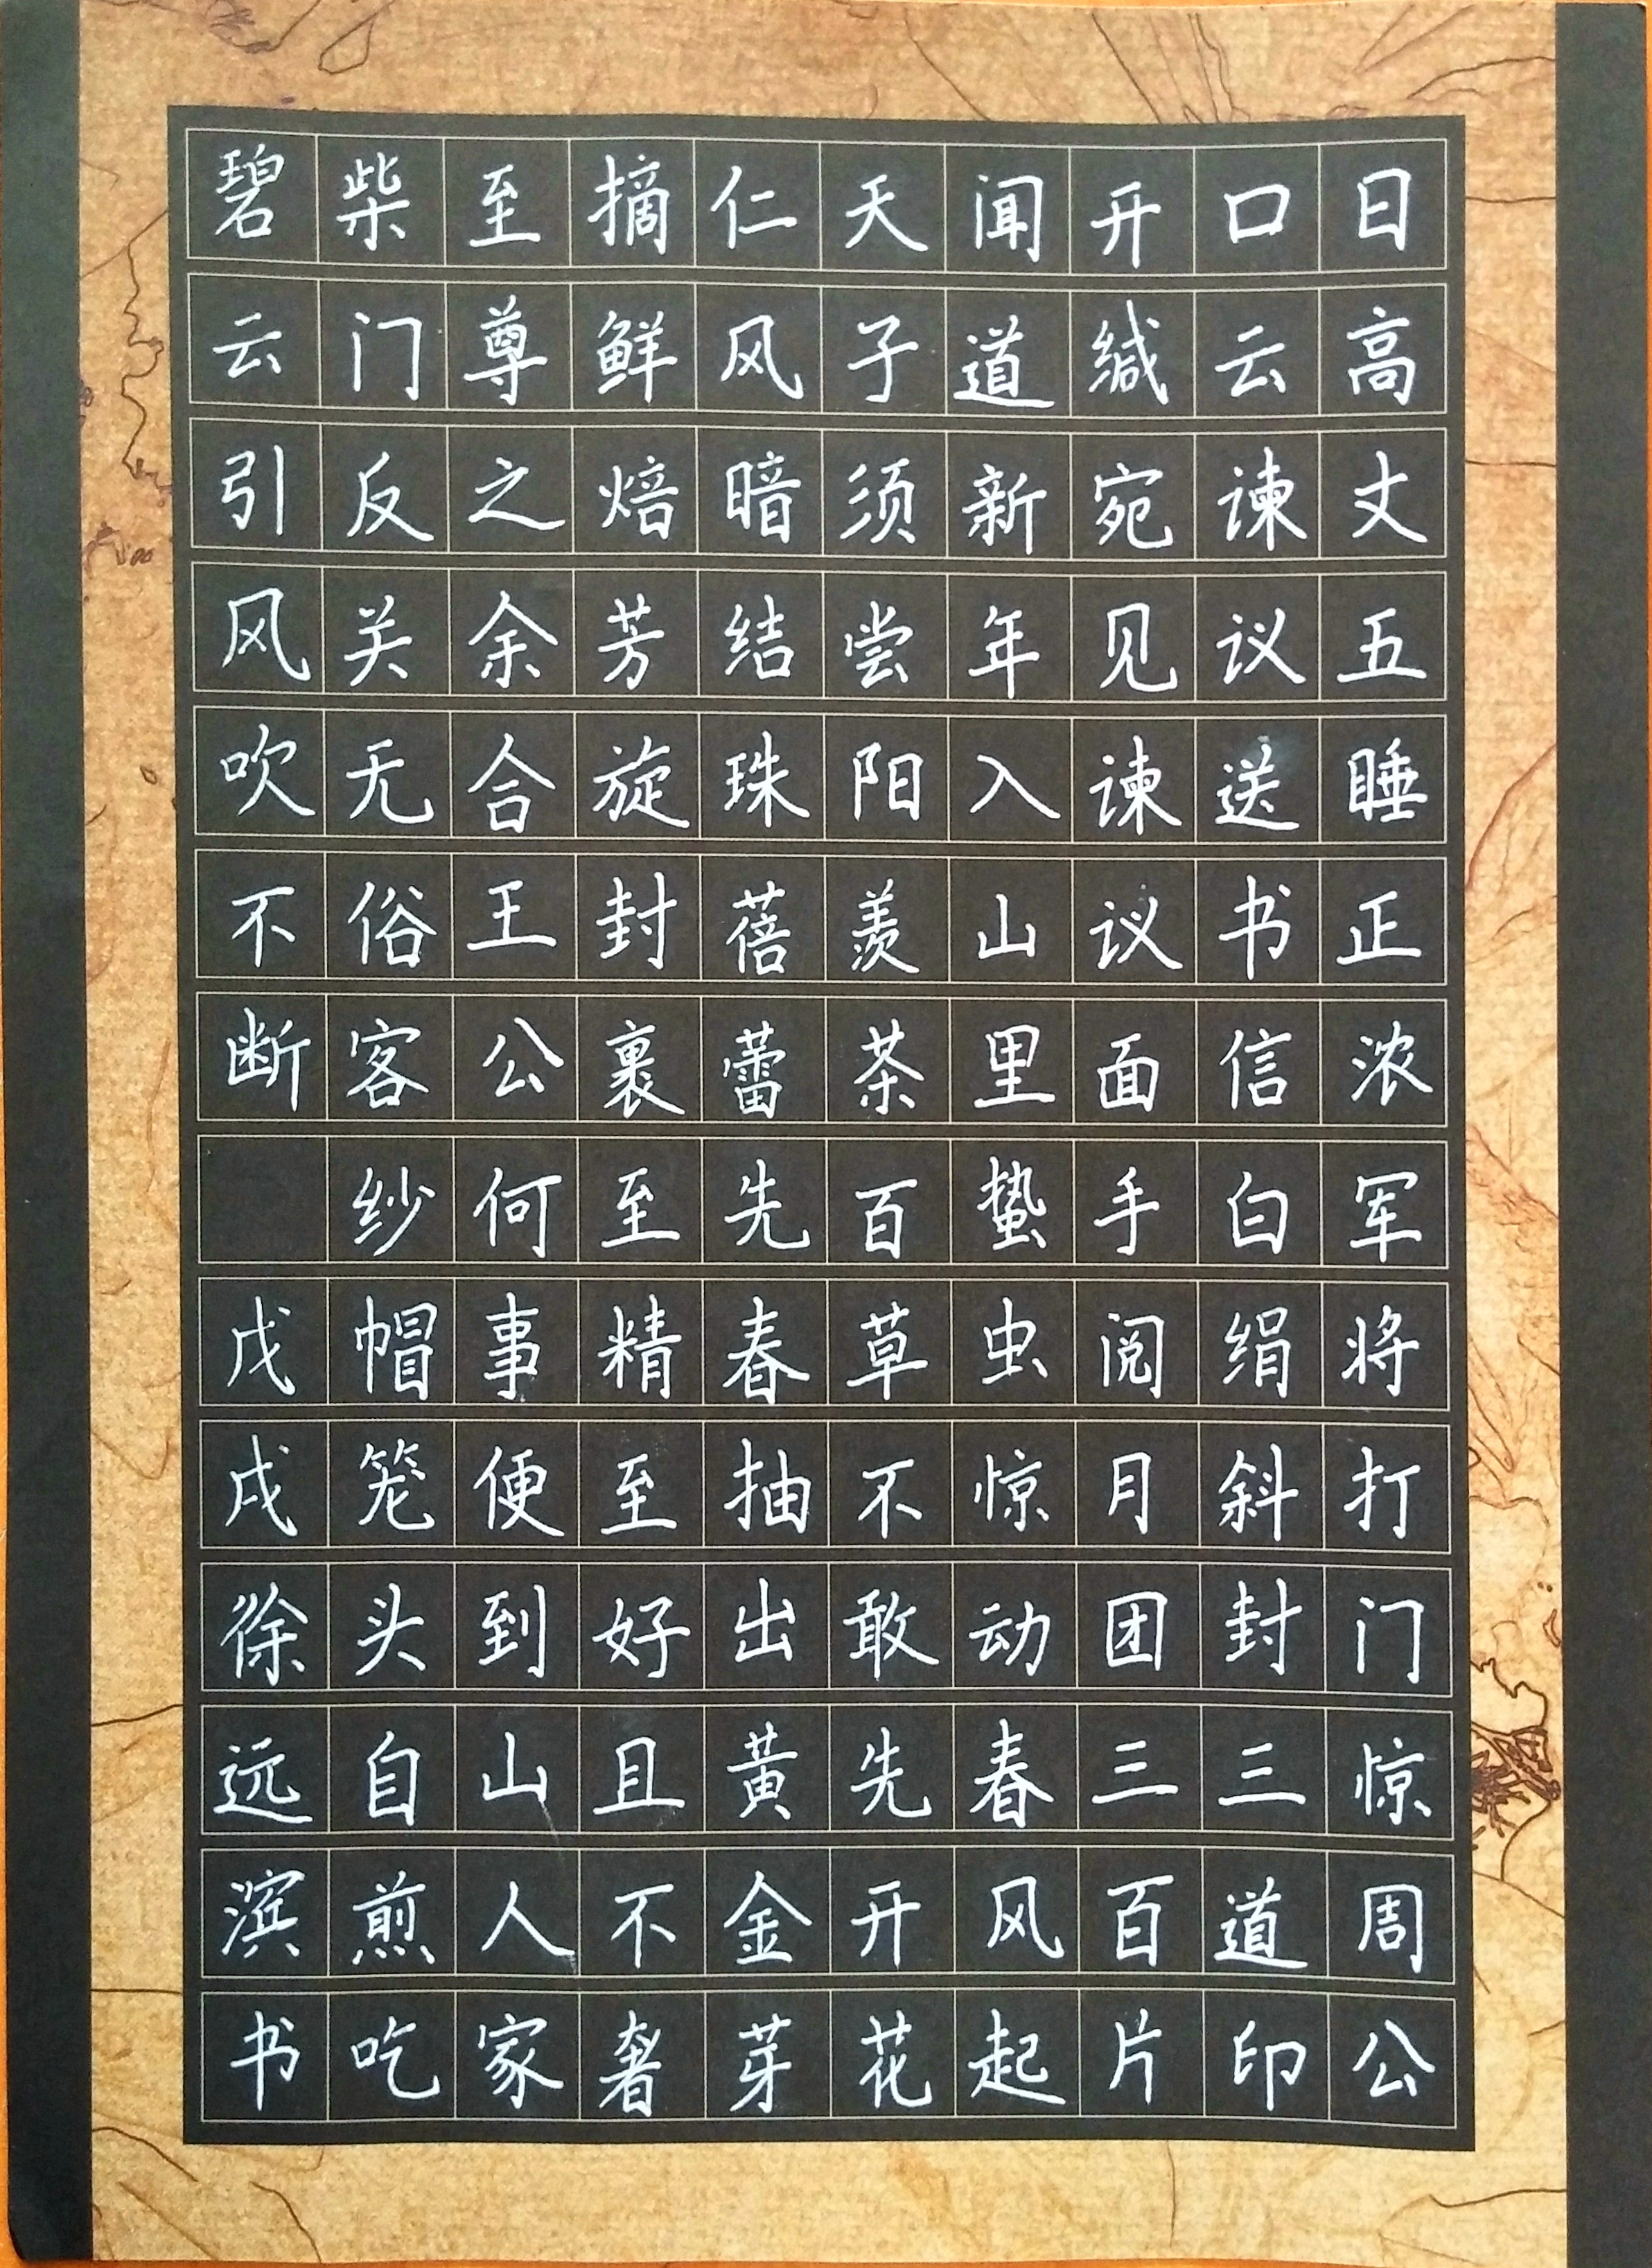 日高丈五睡正浓军将打门惊周公
口云谏议送书信白绢斜封三道印
开缄宛见谏议面手阅月团三百片
闻道新年入山里蛰虫惊动春风起
天子须尝阳羡茶百草不敢先开花
仁风暗结珠蓓蕾先春抽出黄金芽
摘鲜焙芳旋封裹至精至好且不奢
至尊之余合王公何事便到山人家
柴门反关无俗客纱帽笼头自煎吃
碧云引风吹不断 戊戌徐远滨书